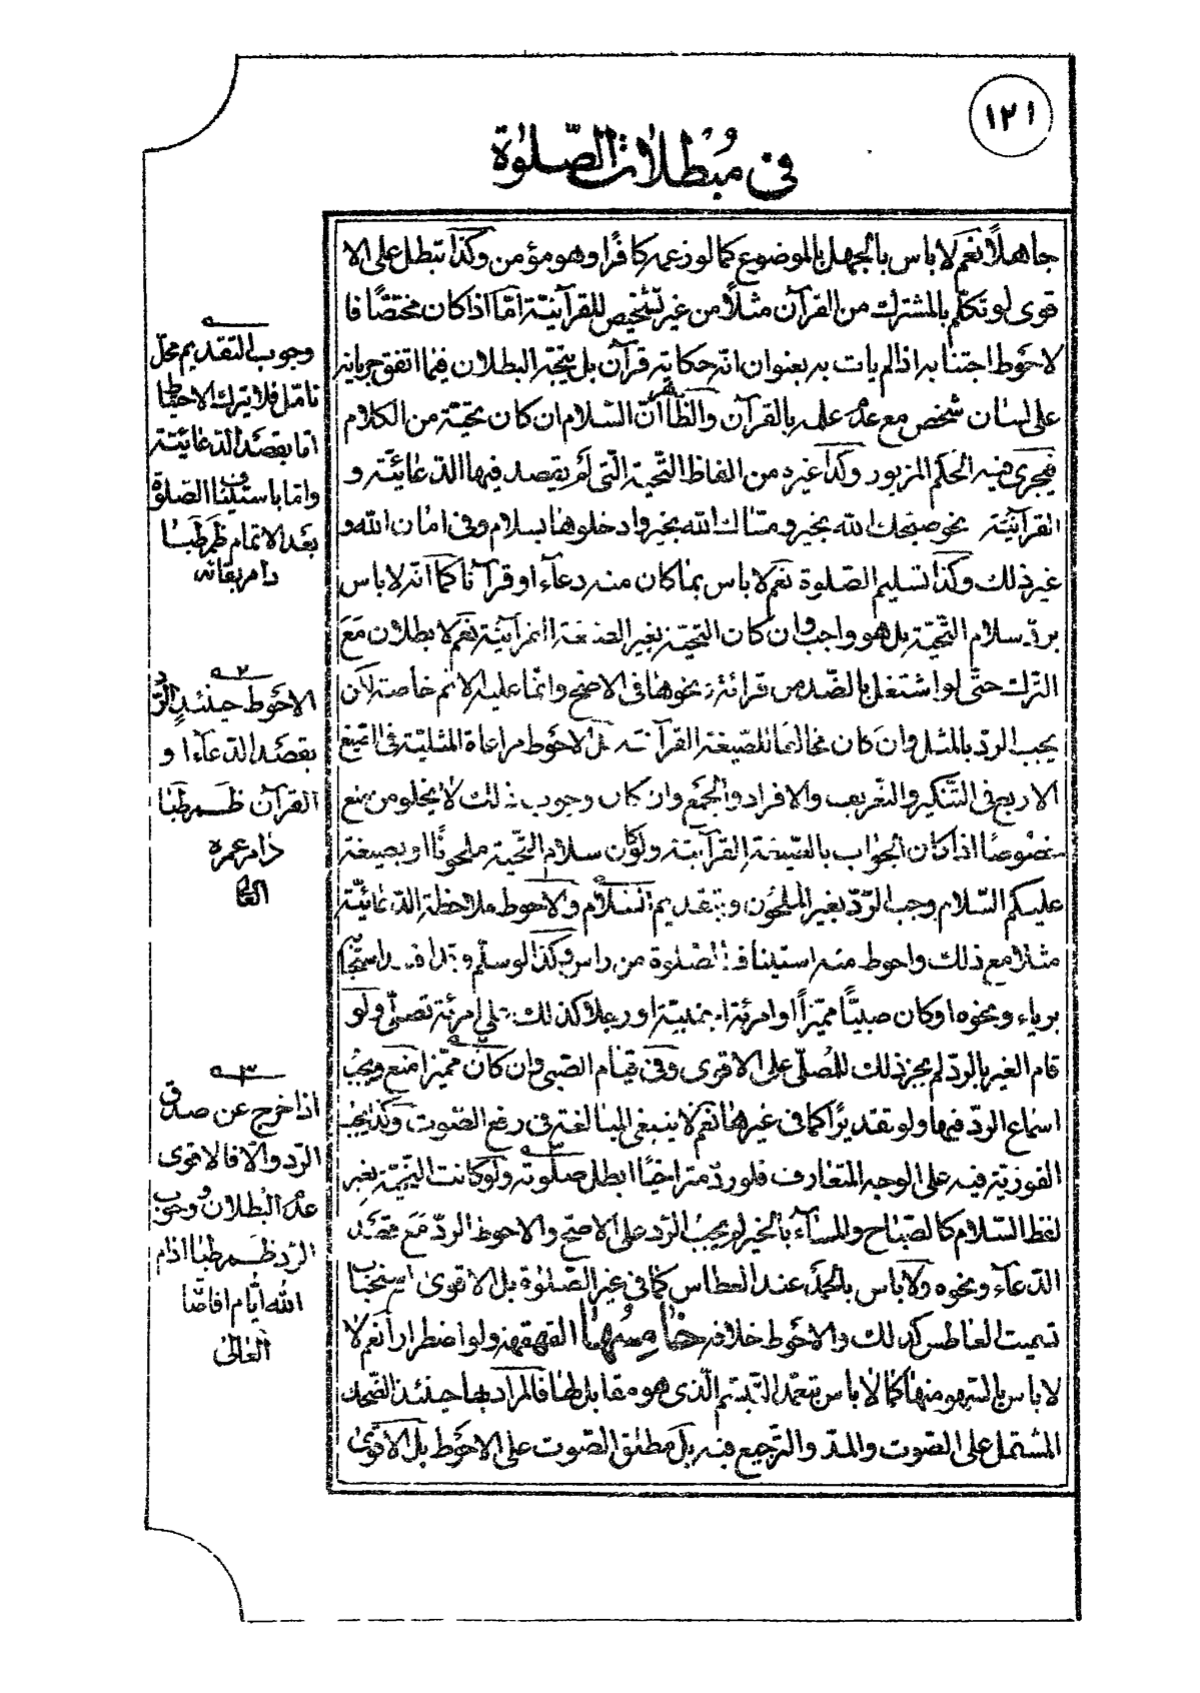 ١٢١
فى مبطلات الصّلوة
جاهلاً نعم لا باس بالجهل بالموضوع كما لو زعمه كافرًا وهو مؤمن وكذا تبطل على الا
قوى لو تكلّم بالمشترك من القرآن مثلاً من غير تشخيص للقرآنيّة امّا اذا كان مختصًا فا
لاحوط اجتنابه اذا لم يات به بعنوان انّه حكاية قرآن بل يتجّه البطلان فيما اتفق جريانه
على لسان شخص مع عدم علمه بالقرآن والظّاهر انّ السّلام ان كان تحيّة من الكلام
فيجرى فيه الحكم المزبور وكذا غيره من الفاظ التّحيّة الّتى لم يقصد فيها الدّعائيّة و
القرآنيّة نحو صبحك الله بخير و مسّاك الله بخير وادخلوها بسلام وفى امان الله و
غير ذلك وكذا تسليم الصّلوة نعم لا باس بما كان منه دعاء او قرآنا كما انّه لا باس
بردّ سلام التّحيّة بل هو واجب وان كان التحيّة بغير الصّيغة القرآنيّة نعم لا بطلان مع
التّرك حتّى لو اشتغل بالضّد من قرائة ونحوها فى الاصحّ وانّما عليه الاثم خاصة لانّ
يجب الردّ بالمثل وان كان مخالفا للصّيغة القرآنيّة بل الاحوط مراعاة المثليّة فى الصّيغ
الاربع فى التّنكير والتّعريف والافراد والجمع وان كان وجوب ذلك لا يخلو من منع
خصوصًا اذا كان الجواب بالصّيغة القرآنيّة ولو كان سلام التّحيّة ملحونًا او بصيغة
عليكم السّلام وجب الرّدّ بغير الملحون وبتقديم السّلام والاحوط ملاحظة الدّعائيّة
مثلا مع ذلك واحوط منه استيناف الصّلوة من راس وكذا لو سلّم
برياء ونحوه او كان صبيًّا مميّزًا او امرئة اجنبيّة او رجلا كذلك على امرئة تصلّى ولو
قام الغير بالردّ لم يجز ذلك للمُصلّى على الاقوى وفى قيام الصّبى وان كان مميّزا منع ويجب
اسماع الردّ فيها ولو تقديرًا كما فى غيرها نعم لا ينبغى المبالغة فى رفع الصّوت وكذا يجب
الفوريّة فيه على الوجه المتعارف فلو ردّ متراخيًا ابطل صلوته ولو كانت التّحيّة بغير
لفظ السّلام كالصّباح والمساء بالخير لم يجب الرّد على الاصحّ والاحوط الردّ مع قصد
الدّعاء ونحوه ولا باس بالحمد عند العطاس كما فى غير الصّلوة بل الاقوى استحباب
تسميت العاطس كذلك والاحوط خلافه خامسها القهقهة ولو اضطرارا نعم لا
لا باس بالسّهو منها كما لا باس بتعمّد التّبسّم الّذى هو مقابل لها فالمراد بها حينئذ الضّحك
المشتمل على الصّوت والمدّ والتّرجيع فيه بل مطلق الصّوت على الاحوط بل الاقوى
وجوب التقديم محلّ
تامّل فلا يترك الاحتياط
امّا بقصد الدّعائيّة
وامّا باستيناف الصّلوة
بعد الاتمام ظم طبا
دام بقائه
٢
الاحوط حينئذٍ الرّد
بقصد الدّعاء او
القرآن ظم طبا
دام عمره
العالى
٣
اذا خرج عن صدق
الردّ والّا فالاقوى
عدم البُطلان ووجوب
الردّ ظم طبا ادام
الله ايّام افاضّا
العالى